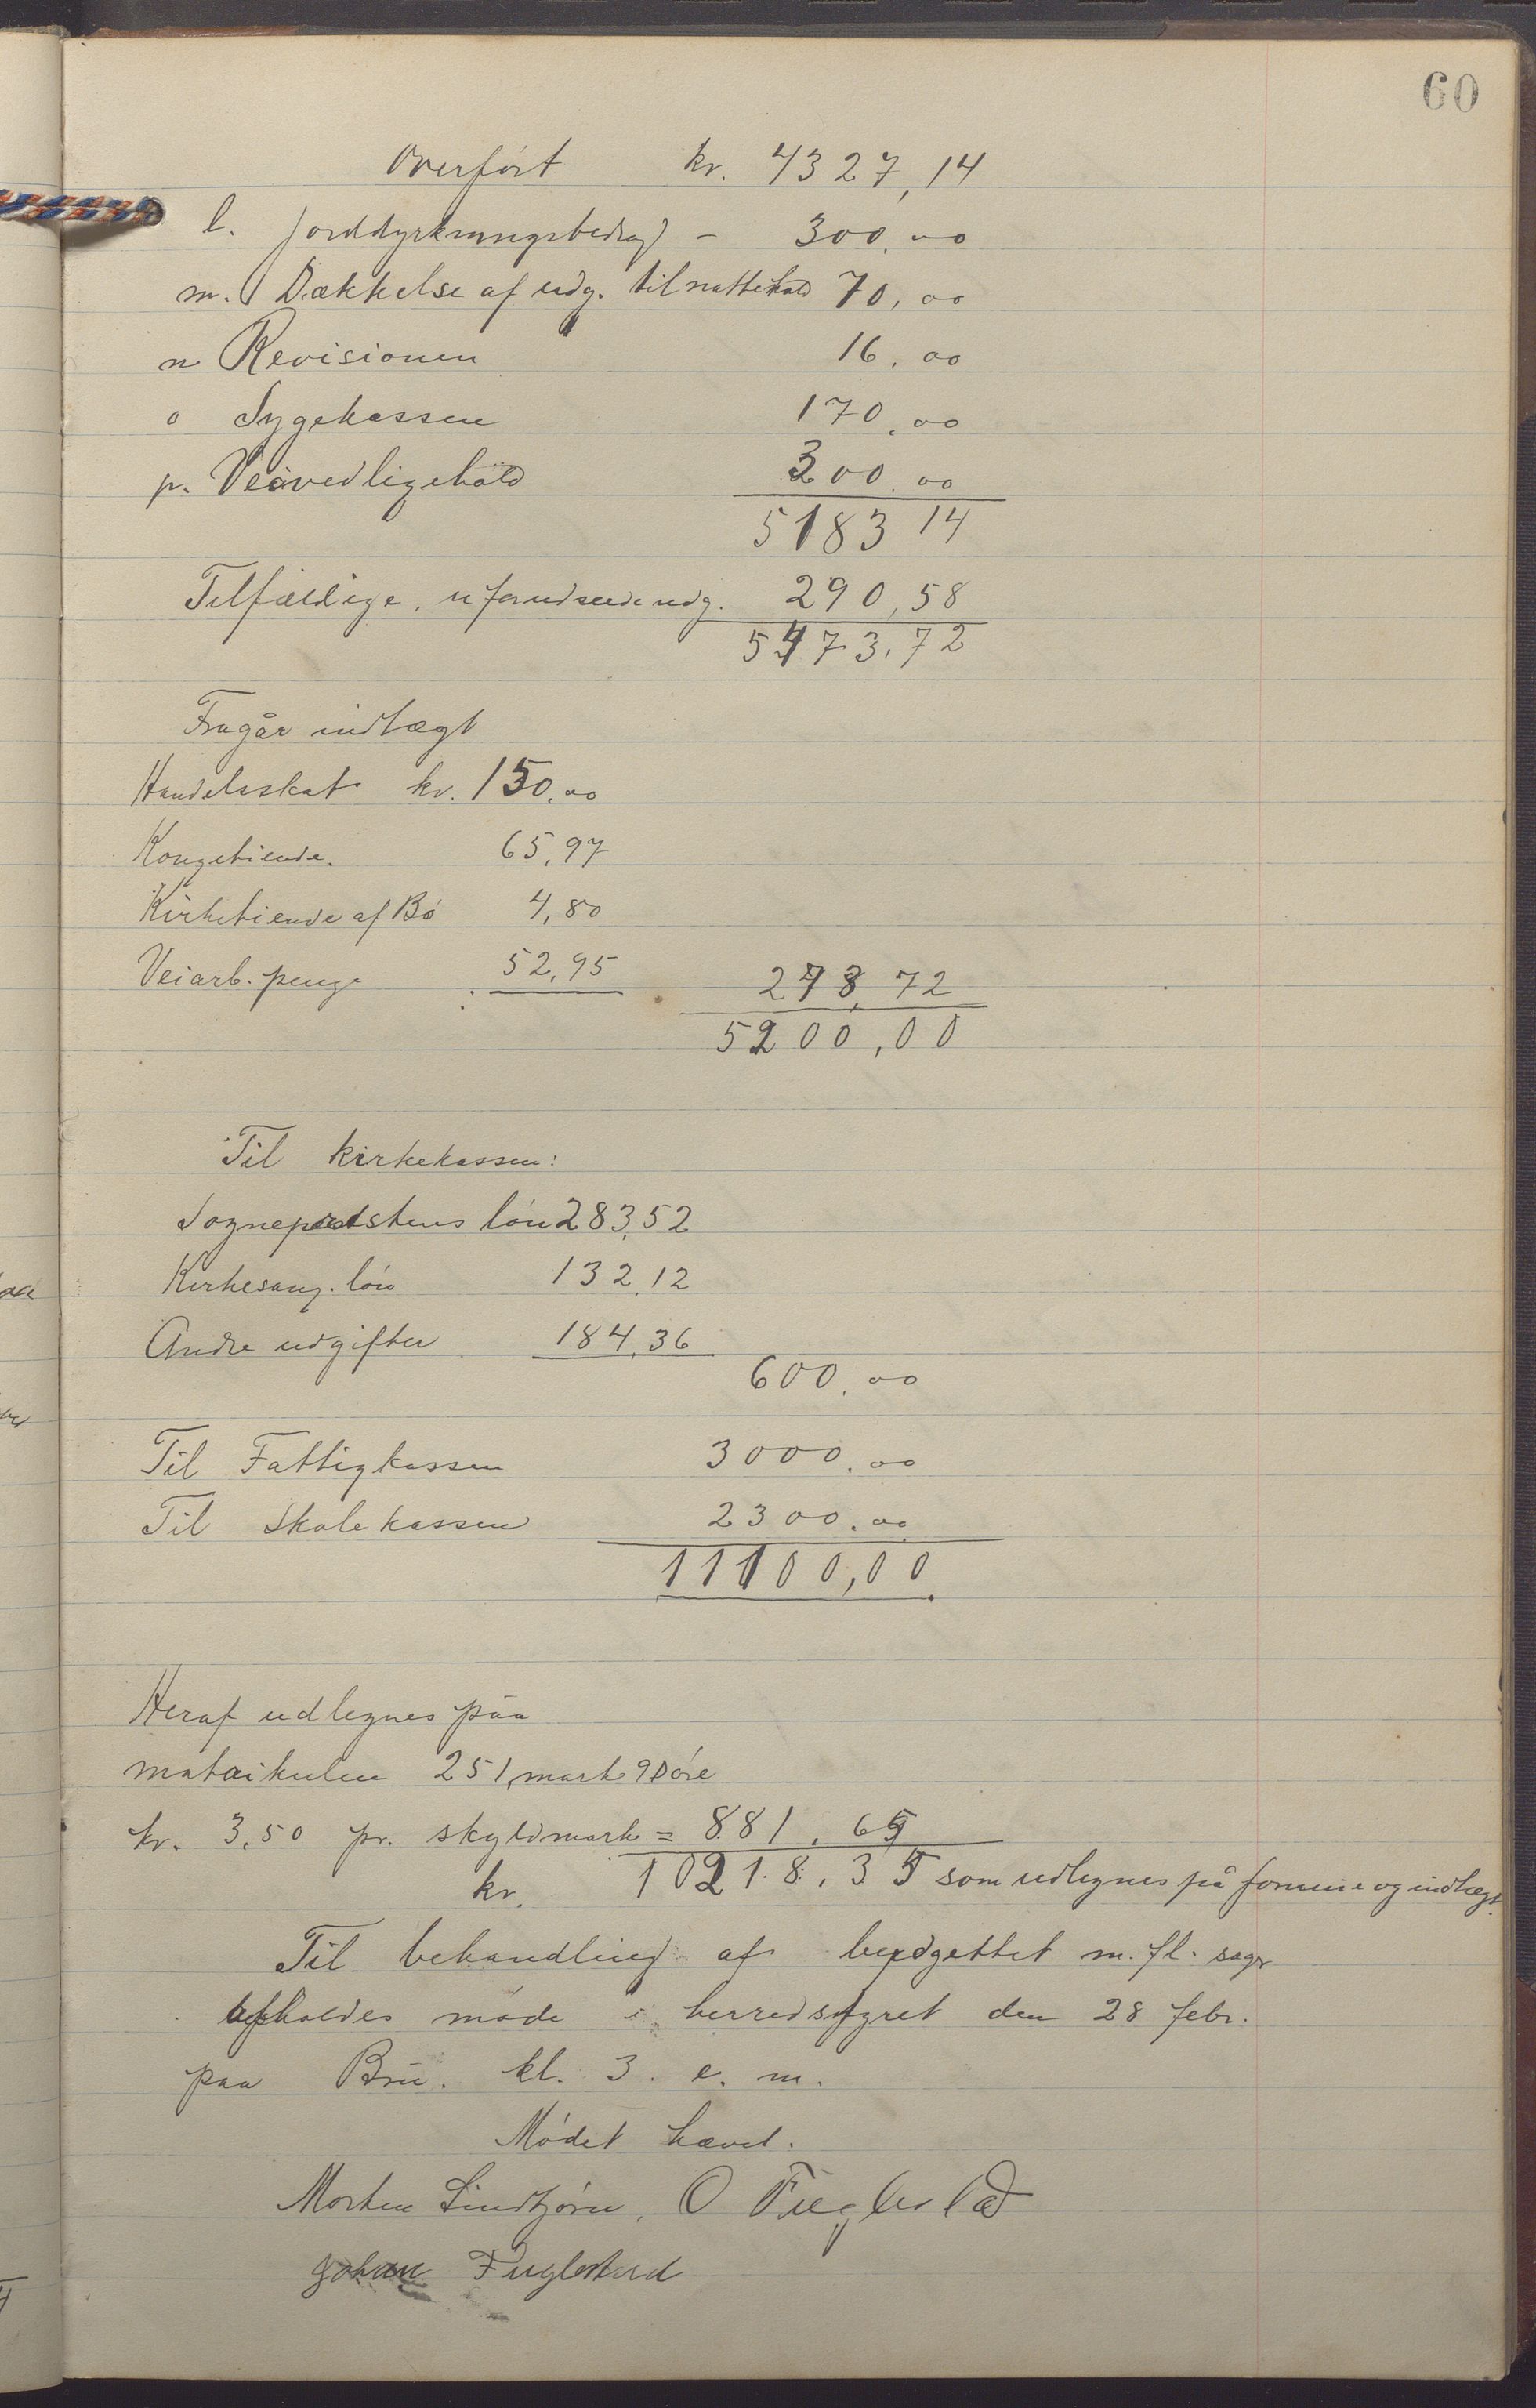 60
Overført kr. 4327,14
l. Jorddyrkningsbidrag - 300,00
m. Dækkelse af udg. til nattehold 70,00
n Revisionen 16,00
o Sygekassen 170,00
p. Veivedligehold 300,00
5183 14
Tilfældige, uforudseede udg. 290,58
5473,72
Fragår indtægt
Handelsskat kr. 150,00
Kongetiende. 65,97
Kirketiende af Bø 4,80
Veiarb. penge 52,95 273,72
5200,00
Til kirkekassen:
Sogneprestens løn 283,52
Kirkesang. løn 132,12
Andre udgifter 184,36
600,00
Til Fattigkassen 3000,00
Til Skolekassen 2300,00
11100,00
Heraf udlignes paa
matrikulen 251 mark 90 øre
kr. 3,50 pr. skyldmark = 881,65
kr. 10218,35 som udlignes på formue og indtægt.
Til behandling af budgettet m. fl. sager
afholdes møde i herredsstyret den 28 febr.
paa Bru. kl. 3. e. m.
Mødet hævet.
Morten Lindtjørn, O Fuglestad
Johan Fuglestad